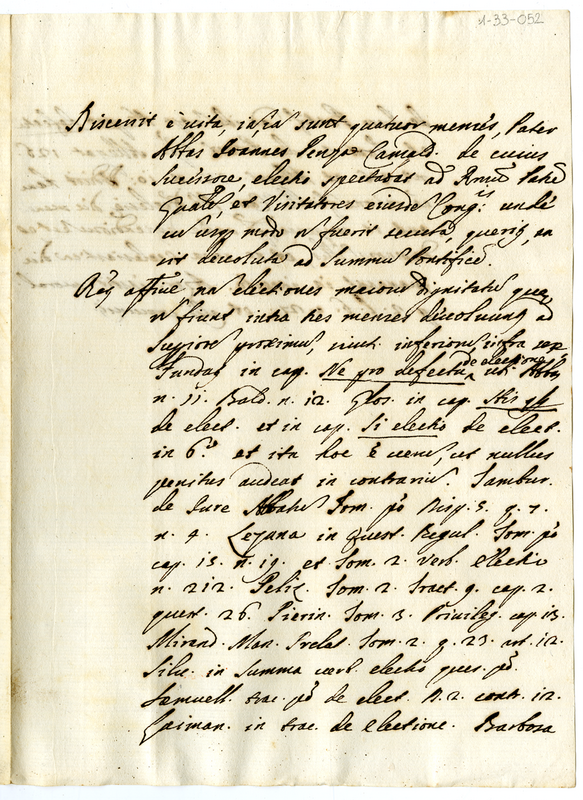 1-33-052
Discessit è vita, iã, iã sunt quatuor menses, Pater
Abbas Joannes Camald. de cuius
Successore, electio spectabat ad Rmũ Patrẽ
Gñalẽ, et Visitatores eiusdẽ Congis: undè
usq; modo ñ fuerit secuta, querit, an
sit devoluta ad Summũ Pontificẽ.
Rñ affive nã electiones maiorũ dignitatũ quæ
ñ fiunt intra tres menses devolvunt ad
Superiorẽ proximũ, inferiorũ infra sex
in cap. Ne pro defectu de electione ubi Abbas
n. 11. Bald. n. 12. Glos. in cap.
de elect. et in cap. Si electio de elect.
in 6.o et ita hoc ẽ verũ, ut nullus
penitus audeat in contrariũ. Tambur.
de Jure Abbatũ Tom. po Disp. 5. q. 7.
n. 4. Lezana in Quest. Regul. Tom. po
cap. 13. n. 19. et Tom. 2. verb. electio
n. 212. Peliz. Tom. 2. Tract. 9. cap. 2.
quest. 26. Pierin. Tom. 3. Privileg. cap. 13.
Mirand. Man. Prelat. Tom. 2. q. 23. art. 12.
Silv. in Summa verb. electio ques. po
Samuell. trac. po de elect. D. 2. contr. 12.
Laiman. in trac. de electione. Barbosa